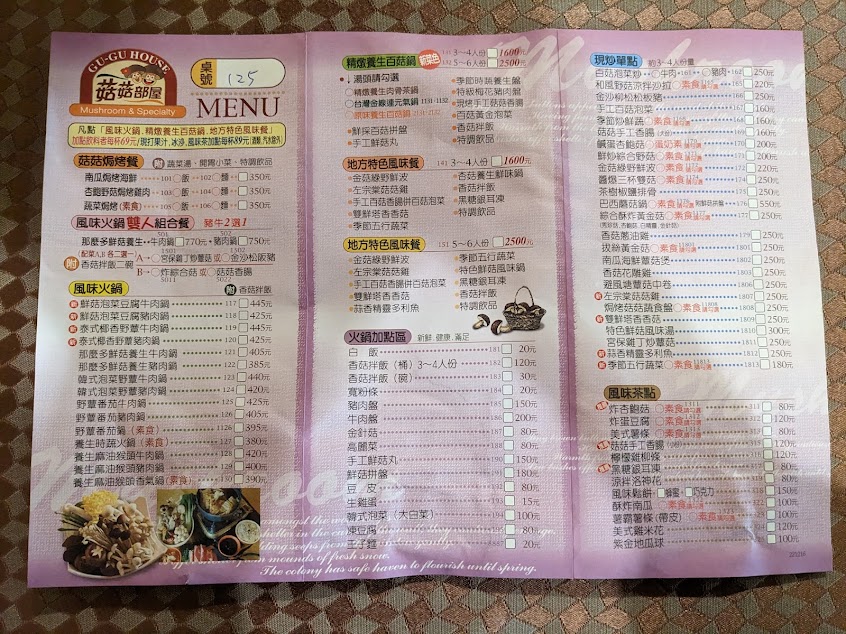 GU-GU HOUSE
菇菇部屋
Mushroom & Specialty
桌號 125
MENU
凡點「風味火鍋、精燉養生百菇鍋、地方特色風味餐」
菇菇焗烤餐 附 蔬菜湯、開胃小菜、特調飲品
南瓜焗烤海鮮 101 飯 102 麵 350元
杏鮑野菇焗烤雞肉 103 飯 104 麵 350元
蔬菜焗烤(素食) 105 飯 106 麵 350元
風味火鍋 雙人組合餐 豬牛2選1
那麼多鮮菇養生 牛肉鍋 770元 豬肉鍋 750元
(配菜A.B 各二選一) A→ 宮保雞丁炒蕈菇 或 金沙松阪豬
附 香菇拌飯二碗 B→ 炸綜合菇 或 菇菇香腸
風味火鍋 附 香菇拌飯
鮮菇泡菜豆腐牛肉鍋 117 445元
鮮菇泡菜豆腐豬肉鍋 118 425元
泰式椰香野蕈牛肉鍋 119 445元
泰式椰香野蕈豬肉鍋 120 425元
那麼多鮮菇養生牛肉鍋 121 405元
那麼多鮮菇養生豬肉鍋 122 385元
韓式泡菜野蕈牛肉鍋 123 440元
韓式泡菜野蕈豬肉鍋 124 420元
野蕈番茄牛肉鍋 125 425元
野蕈番茄豬肉鍋 126 405元
野蕈番茄鍋(素食) 1126 395元
養生時蔬火鍋(素食) 127 380元
養生麻油猴頭牛肉鍋 128 420元
養生麻油猴頭豬肉鍋 129 400元
養生麻油猴頭香氣鍋(素食) 130 390元
精燉養生百菇鍋 新菜色 141 3～4人份 1600元
142 5～6人份 2500元
湯頭請勾選
精燉養生肉骨茶鍋
台灣金線連元氣鍋 1131·1132
原味養生百菇鍋 2131·2132
鮮採百菇拼盤
手工鮮菇丸
季節時蔬養生盤
特級梅花豬肉盤
現烤手工菇菇香腸
百菇黃金泡菜
香菇拌飯
特調飲品
地方特色風味餐 141 3～4人份 1600元
金菇綠野鮮波
左宗棠菇菇雞
手工百菇香腸併百菇泡菜
雙鮮塔香香菇
季節五行蔬菜
杏菇養生鮮味鍋
香菇拌飯
黑糖銀耳凍
特調飲品
地方特色風味餐 151 5～6人份 2500元
金菇綠野鮮波
左宗棠菇菇雞
手工百菇香腸併百菇泡菜
雙鮮塔香香菇
蒜香精靈多利魚
季節五行蔬菜
特色鮮菇風味鍋
黑糖銀耳凍
香菇拌飯
特調飲品
火鍋加點區 新鮮、健康、滿足
白 飯 20元
香菇拌飯(桶)3～4人份 120元
香菇拌飯(碗) 30元
寬粉條 20元
豬肉盤 150元
牛肉盤 200元
金針菇 80元
高麗菜 80元
手工鮮菇丸 150元
鮮菇拼盤 180元
豆 皮 80元
生雞蛋 15元
韓式泡菜(大白菜) 100元
凍豆腐
王子麵 20元
現炒單點 約3～4人份量
百菇泡菜炒 牛肉 161 豬肉 162 250元
和風野菇涼拌沙拉 素食請勾選 220元
金沙柳松松板豬 250元
季節炒鮮蔬 素食請勾選 160元
菇菇手工香腸 160元
鹹蛋杏鮑菇 蛋奶素 200元
鮮炒綜合野菇 素食 200元
金菇綠野鮮波 素食 220元
醬爆三杯雙菇 素食 240元
茶樹椒鹽排骨 250元
巴西蘑菇鍋 素食 550元
綜合酥炸黃金菇 素食請勾選 177 250元
香菇蔥油雞 250元
拔絲黃金菇 素食請勾選 250元
南瓜海鮮蕈菇煲 1802 250元
香菇花雕雞 1803 250元
避風塘蕈菇中卷 1806 250元
左宗棠菇菇雞 1807 250元
焗烤菇菇蔬食盤 素食請勾選 1808 250元
雙鮮塔香香菇 素食請勾選 1809 250元
特色鮮菇風味湯 1810 300元
宮保雞丁炒蕈菇 1811 250元
蒜香精靈多利魚 1812 250元
季節五行蔬菜 素食請勾選 1813 180元
風味茶點
炸杏鮑菇 素食請勾選 311 80元
炸蛋豆腐 素食請勾選 80元
美式薯條 素食請勾選 80元
菇菇手工香腸 120元
檸檬雞柳條 120元
黑糖銀耳凍 80元
涼拌洛神花 80元
風味鬆餅 蜂蜜 巧克力 150元
酥炸南瓜 素食 100元
薯霸薯條(帶皮) 素食 100元
美式雞米花 100元
紫金地瓜球 100元
mounds of fresh snow.
The colony has safe haven to flourish until spring.